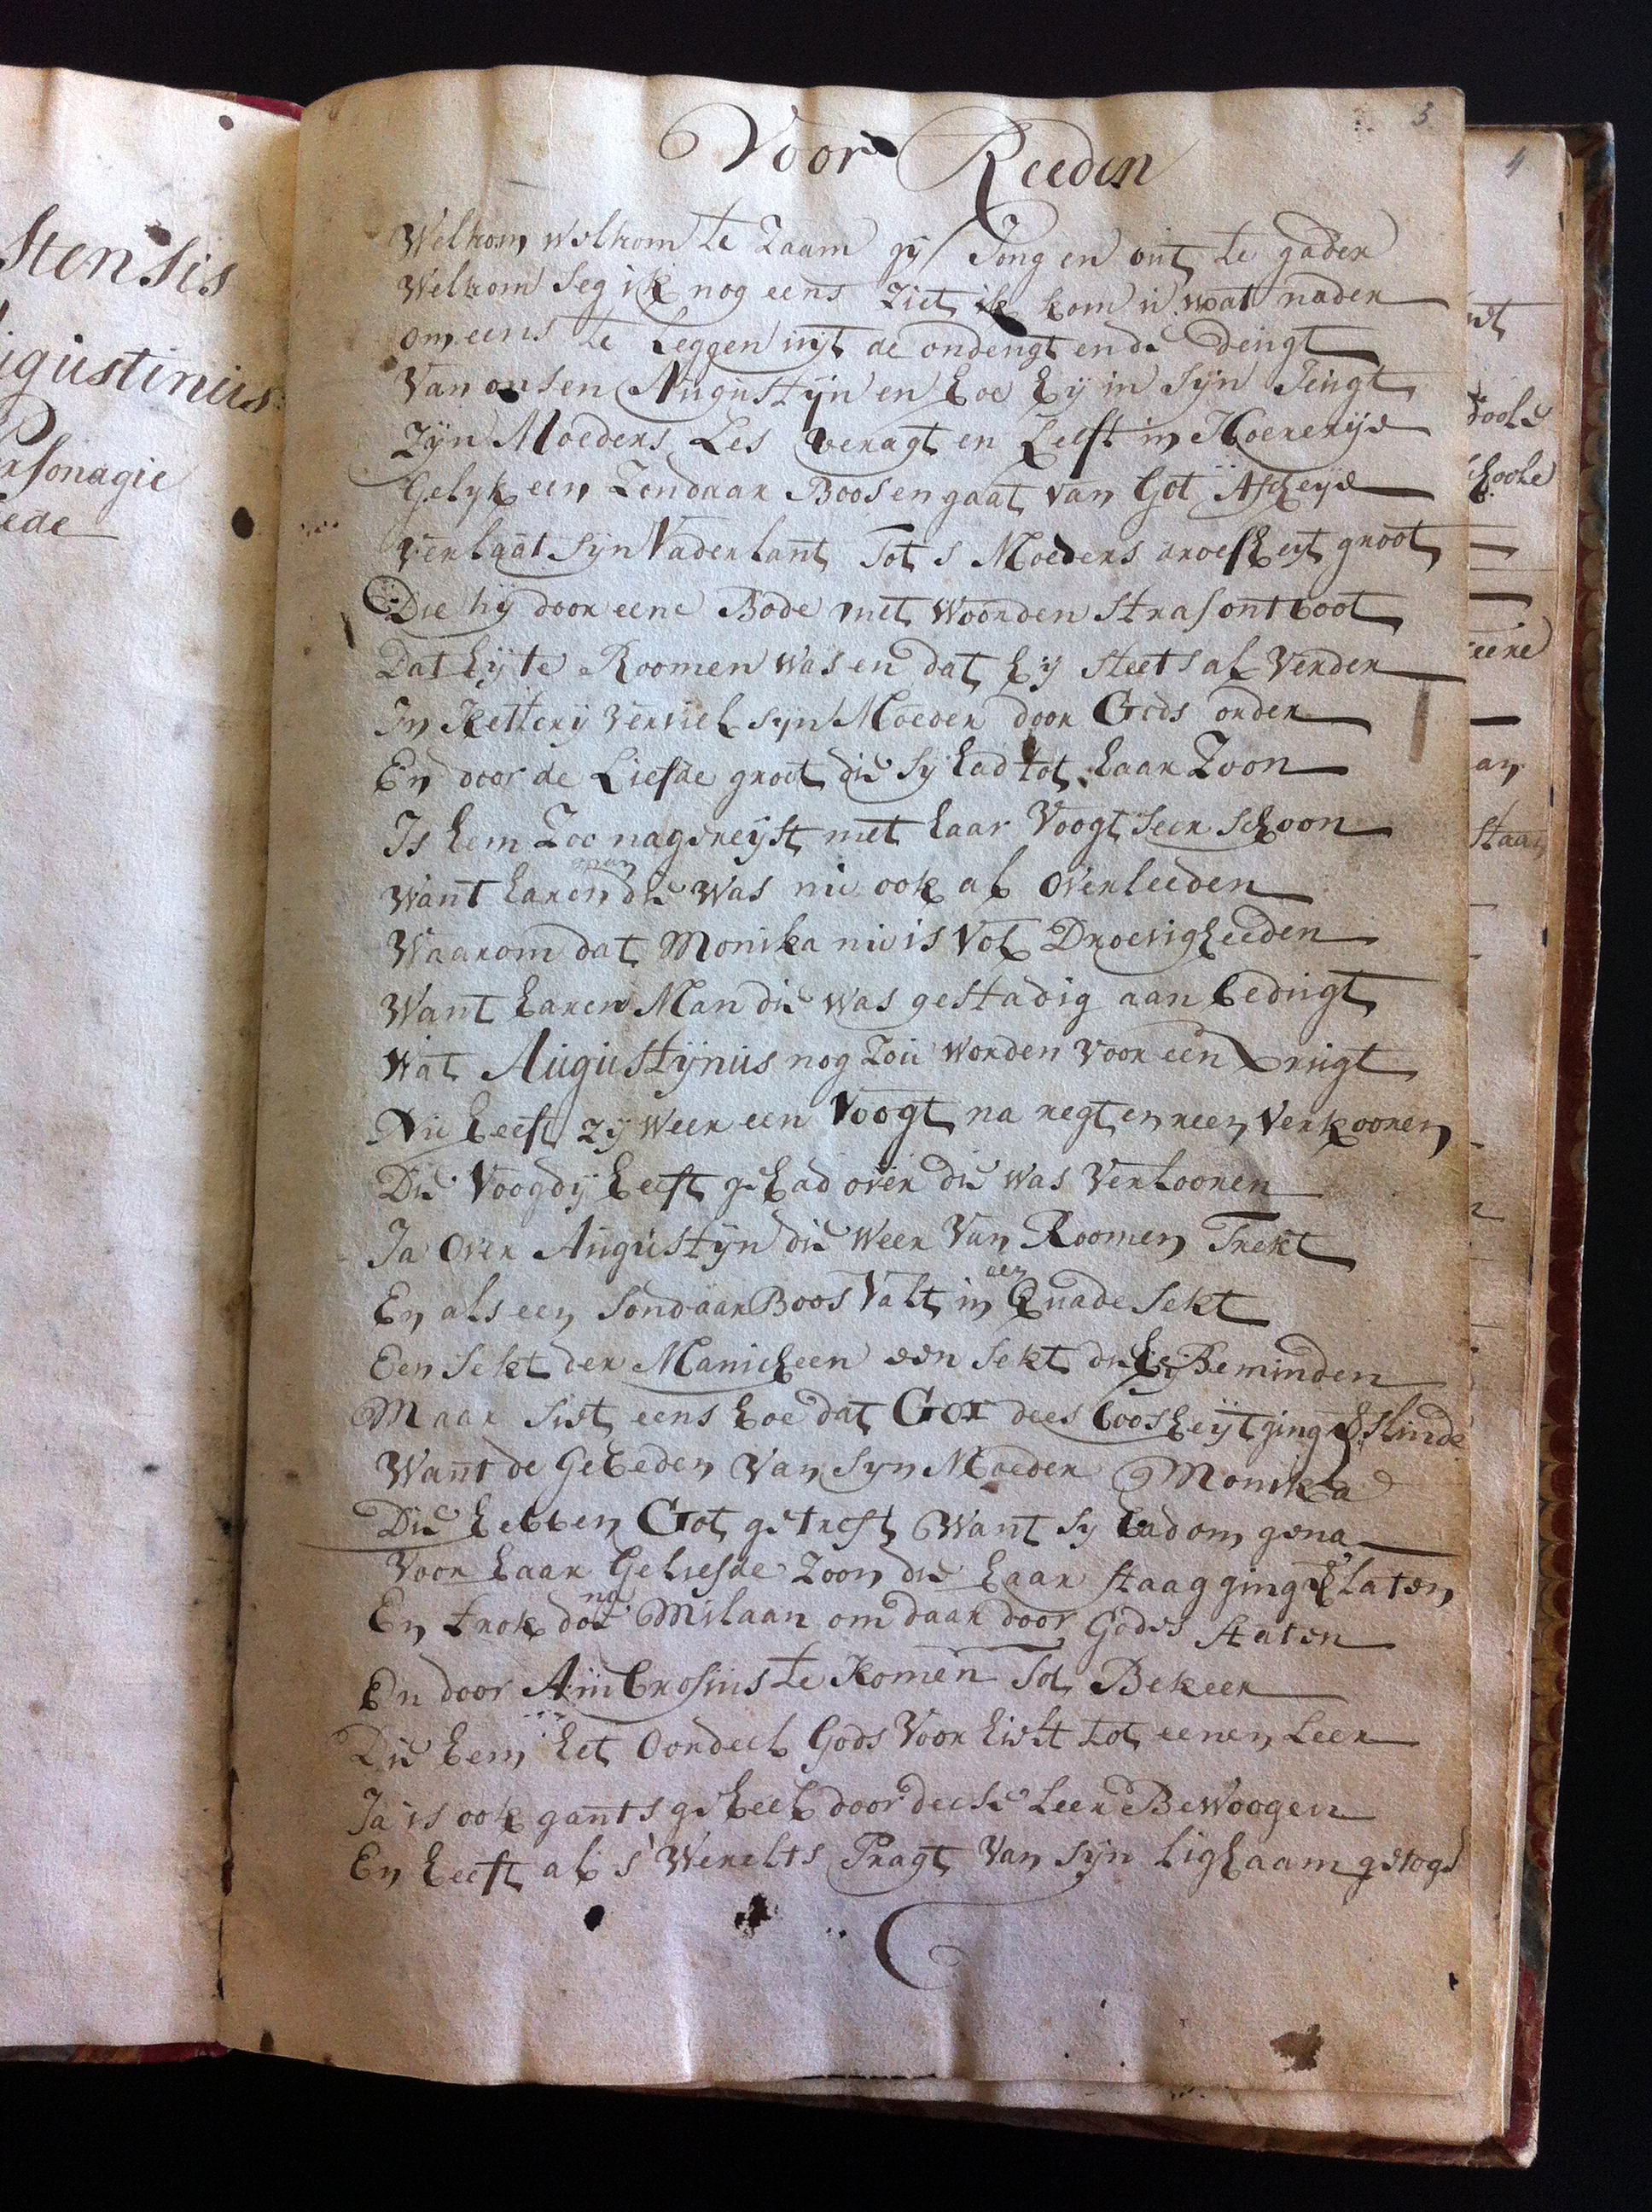 3
Voor Reeden
Welkom welkom te Zaam gij Jong en out te gader
Welkom seg ik nog eens ziet ik kom u wat nader
om eens te leggen uijt de ondeugt en de deugt
Van onsen Augustijn en hoe hij in sijn Jeugt
Zijn Moeders Les veragt en Leeft in Hoererije
Gelyk een Zondaar Boos en gaat van Got Afscheijde
Verlaat sijn Vaderlant tot s Moeders droefheijt groot
Die hij door eene Bode met woorden straf ontboot
Dat hij te Roomen was en dat hij steets al verder
In Ketterij verviel sijn Moeder door Gods order
En door de Liefde groot die sij had tot haar Zoon
Is hem Zoo nagereijst met haar Voogt seer schoon
man
Want haren die was nu ook al overleeden
Waarom dat Monika nu is vol Droevigheeden
Want haren Man die was gestadig aan beduigt
Wat Augustijnus nog Zou worden voor een vrugt
Nu heeft zij weer een Voogt na regt en reen verkooren
Die Voogdij heeft gehad over die was Verlooren
Ja over Augustijn die weer van Roomen Trekt
een
En als een sondaar Boos Valt in Quade sekt
Een sekt der Manicheen een sekt die hij Beminden
Maar siet eens hoe dat Got dees boosheijt ging slinde
Want de Gebeden van syn Moeder Monika
Die hebben Got getreft Want sy bad om gena
Voor haar Geliefde Zoon die haar staag ging laten
na
En trok dot Milaan om daar door Godes staten
En door Ambrosius te Komen Tot Bekeer
Die hem het Oordeel Gods Voor hielt tot eenen Leer
Ja is ook gants geheel door deese Leer Bewoogen
En heeft al s' Werelts Pragt van sijn lighaam getoge
stensis
ugustinus
rsonagie
ede
4